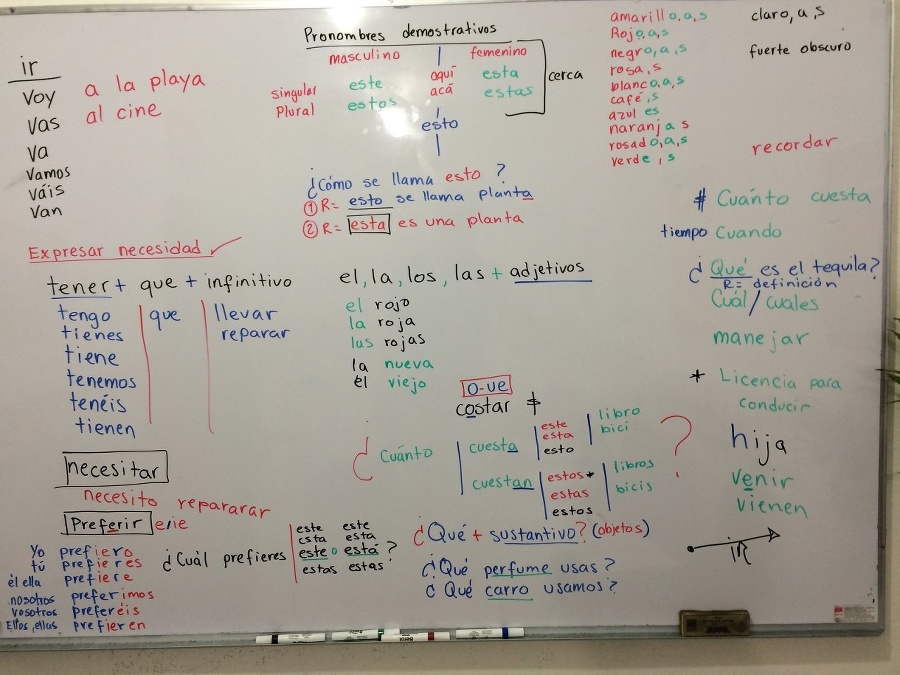 ir
Voy
Vas
Va
Vamos
Váis
Van
a la playa
al cine
Pronombres demostrativos
masculino femenino
singular este aquí esta
Plural estos acá estas
cerca
esto
¿Cómo se llama esto ?
① R= esto se llama planta
② R= esta es una planta
amarillo,a,s
Rojo,a,s
negro,a,s
rosa,s
blanco,a,s
café,s
azul es
naranja s
rosado,a,s
verde,s
claro,a,s
fuerte obscuro
recordar
Expresar necesidad
tener + que + infinitivo
tengo que llevar
tienes reparar
tiene
tenemos
tenéis
tienen
necesitar
necesito repararar
Preferir e/ie
Yo prefiero
tú prefieres
él ella prefiere
nosotros preferimos
vosotros preferéis
Ellos,ellas prefieren
¿Cuál prefieres
este este
esta esta
este o está ?
estas estas
el, la, los, las + adjetivos
el rojo
la roja
las rojas
la nueva
él viejo
O-ue
costar
¿ Cuánto
cuesta
este
esta
esto
libro
bici
cuestan
estos*
estas
estos
libros
bicis
?
¿Qué + sustantivo? (objetos)
¿Qué perfume usas?
¿Qué carro usamos?
# Cuánto cuesta
tiempo Cuando
¿ Qué es el tequila?
R= definición
Cuál/cuales
manejar
* Licencia para
conducir
hija
venir
vienen
IR